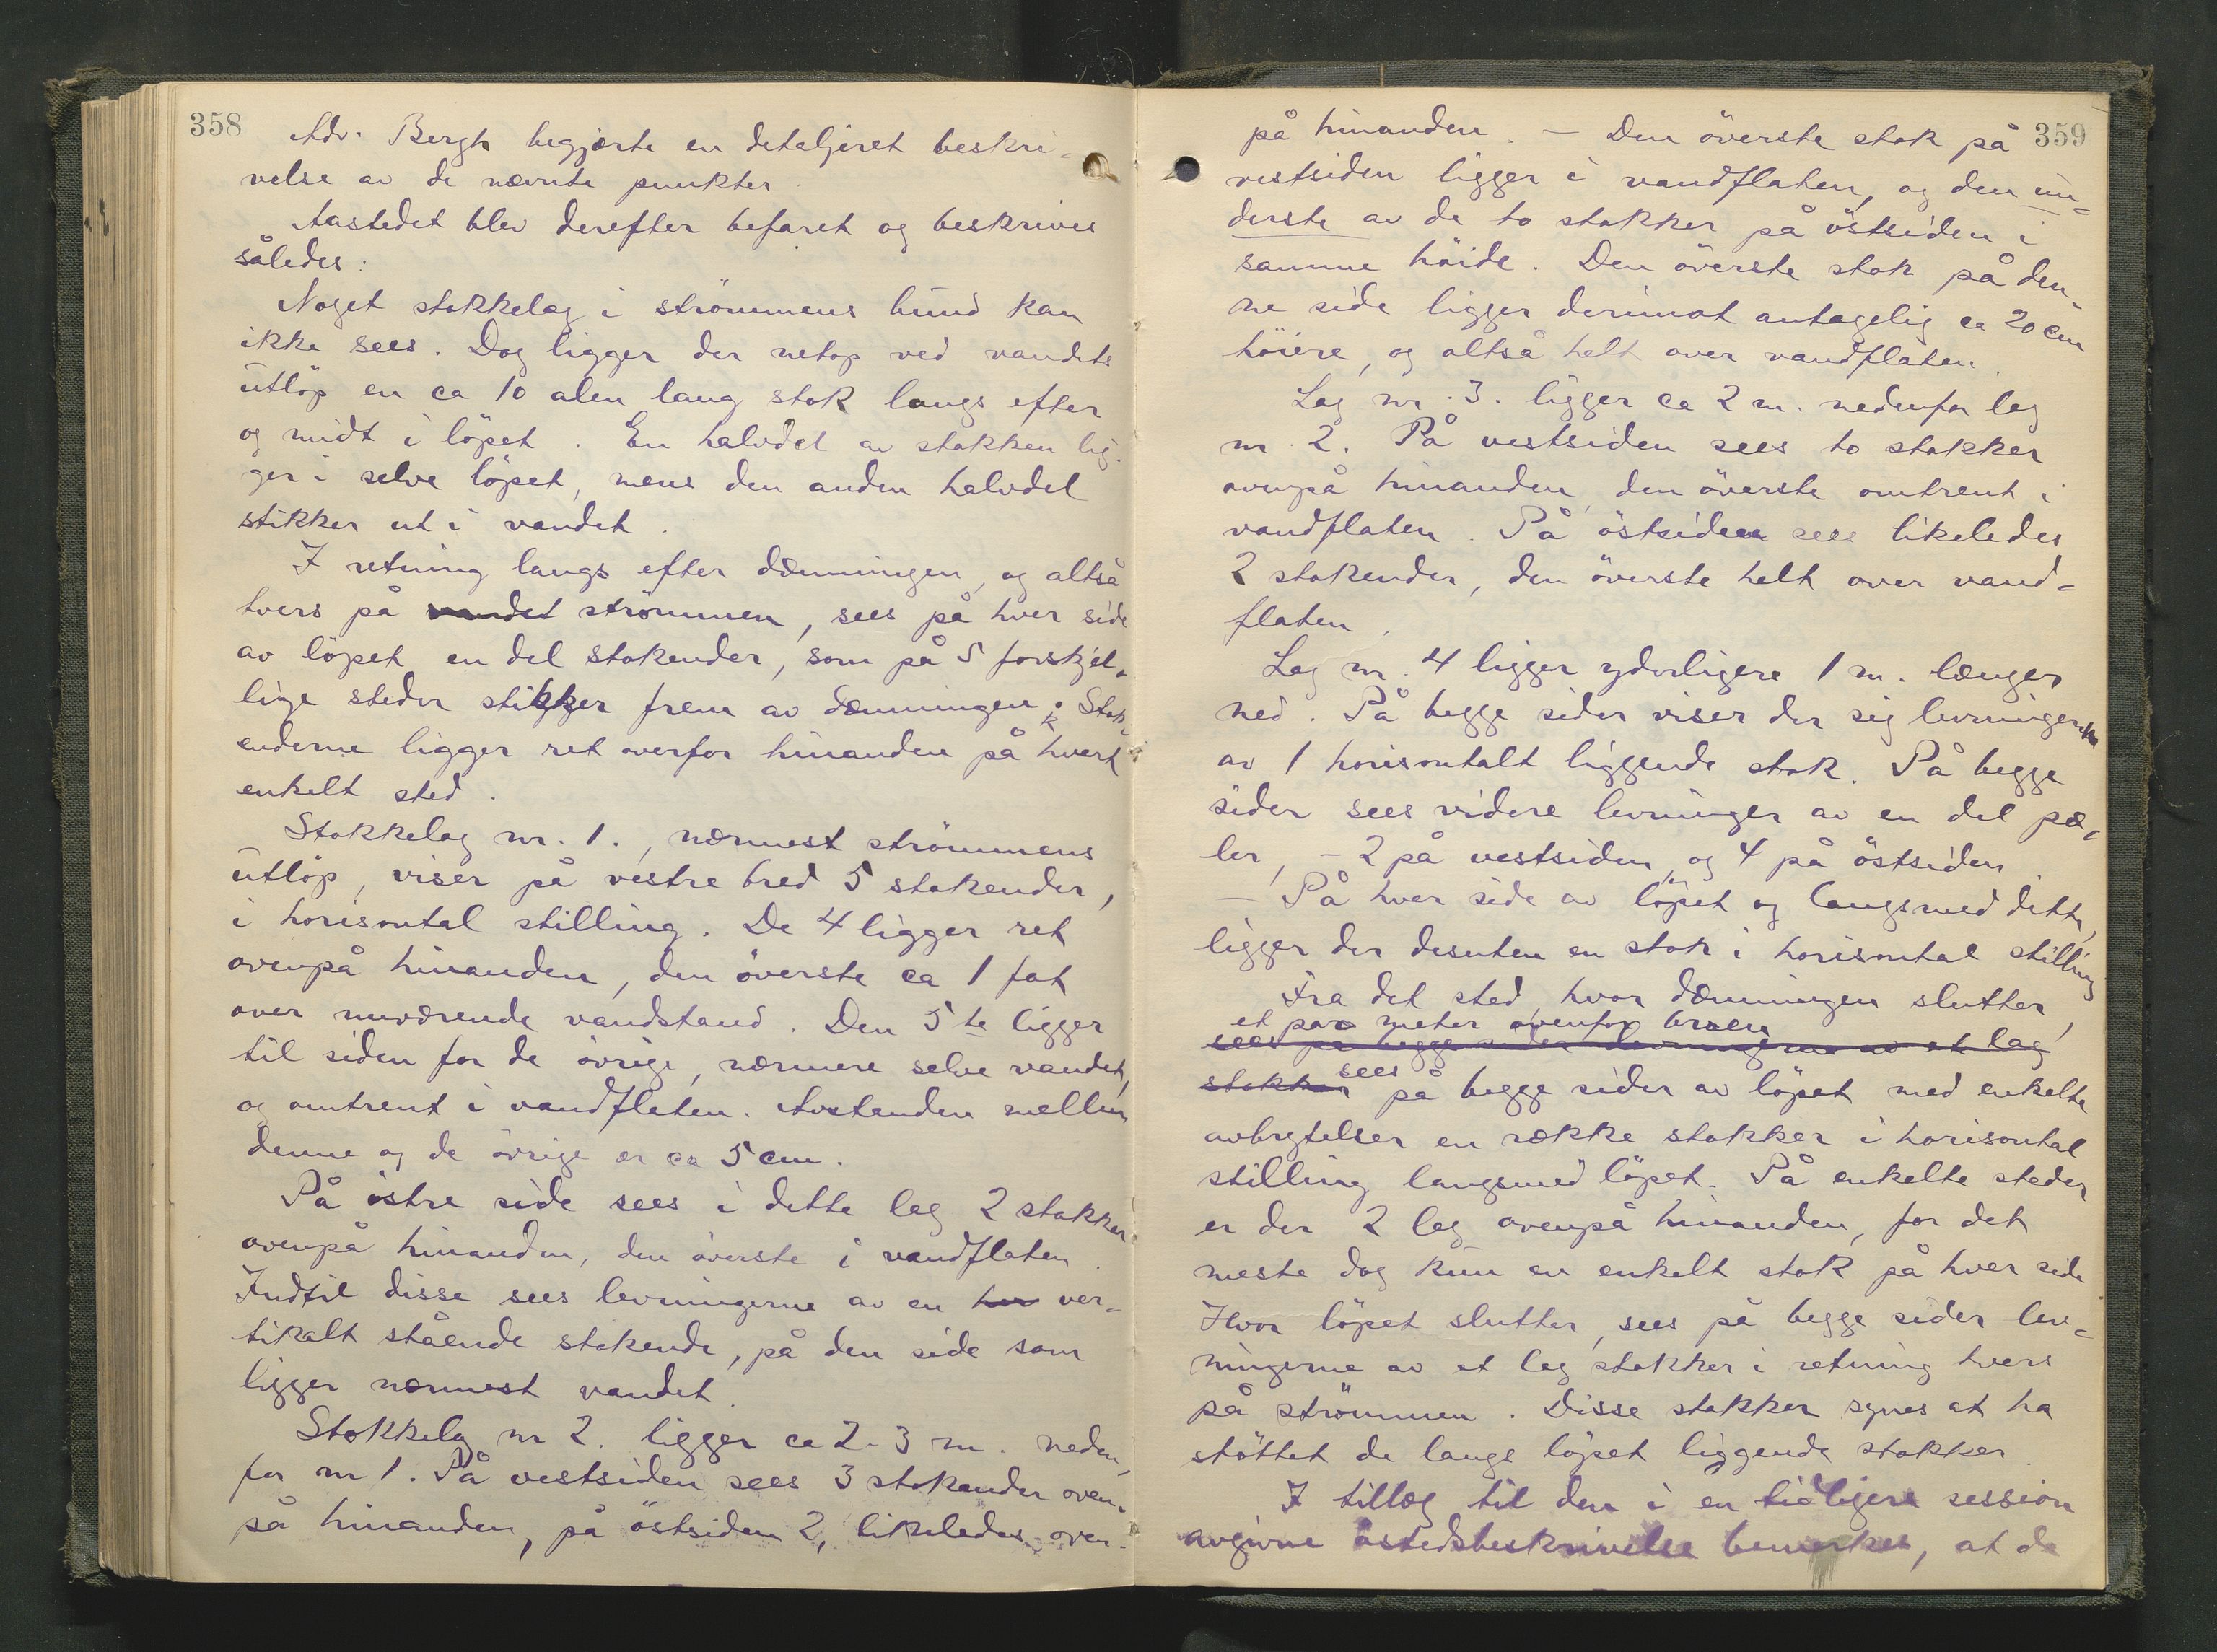 358
Adv. Bergh begjærte en detaljeret beskri-
velse av de nævnte punkter.
Aastedet blev derefter befaret og beskrives
således:
Noget stokkelag i strömmens bund kan
ikke sees. Dog ligger der netop ved vandets
utlöp en ca 10 alen lang stok langs efter
og midt i löpet. En halvdel av stokken lig-
ger i selve löpet, mens den anden halvdel
stikker ut i vandet.
I retning langs efter dæmningen, og altså
tvers på vandet strömmen, sees på hver side
av löpet en del stokender, som på 5 forskjel-
lige steder stikker frem av dæmningen. Stok-
enderne ligger ret overfor hinanden på hvert
enkelt sted.
Stokkelag nr. 1., nærmest strömmens
utlöp, viser på vestre bred 5 stokender,
i horisontal stilling. De 4 ligger ret
ovenpå hinanden, den överste ca 1 fot
over nuværende vandstand. Den 5te ligger
til siden for de övrige, nærmere selve vandet,
og omtrent i vandflaten. Avstanden mellem
denne og de övrige er ca 5 cm.
På östre side sees i dette lag 2 stokker
ovenpå hinanden, den överste i vandflaten.
Indtil disse sees levningerne av en hor ver-
tikalt stående stokende, på den side som
ligger nærmest vandet.
Stokkelag nr 2. ligger ca 2-3 m. neden-
for nr 1. På vestsiden sees 3 stokender oven-
på hinanden, på östsiden 2, likeledes oven-
359
på hinanden. — Den överste stok på
vestsiden ligger i vandflaten, og den un-
derste av de to stokker på östsiden i
samme höide. Den överste stok på den-
ne side ligger derimot antagelig ca 20 cm
höiere, og altså helt over vandflaten.
Lag nr. 3. ligger ca 2 m. nedenfor lag
nr. 2. På vestsiden sees to stokker
ovenpå hinanden, den överste omtrent i
vandflaten. På östsiden sees likeledes
2 stokender, den överste helt over vand-
flaten.
Lag nr. 4 ligger yderligere 1 m. længer
ned. På begge sider viser der sig levningerne
av 1 horisontalt liggende stok. På begge
sider sees videre levninger av en del pæ-
ler, – 2 på vestsiden, og 4 på östsiden.
— På hver side av löpet og langsmed dette,
ligger der desuten en stok i horisontal stilling
Fra det sted, hvor dæmningen slutter,
et par meter ovenfor broen
sees på begge sider levningerne av et lag
stokker sees på begge sider av löpet med enkelte
avbrytelser en række stokker i horisontal
stilling langsmed löpet. På enkelte steder
er der 2 lag ovenpå hinanden, for det
meste dog kun en enkelt stok på hver side
Hvor löpet slutter, sees på begge sider lev-
ningerne av et lag stokker i retning tvers
på strömmen. Disse stokker synes at ha
stöttet de langs löpet liggende stokker.
I tillæg til den i en tidligere session
avgivne åstedsbeskrivelse bemerkes, at de